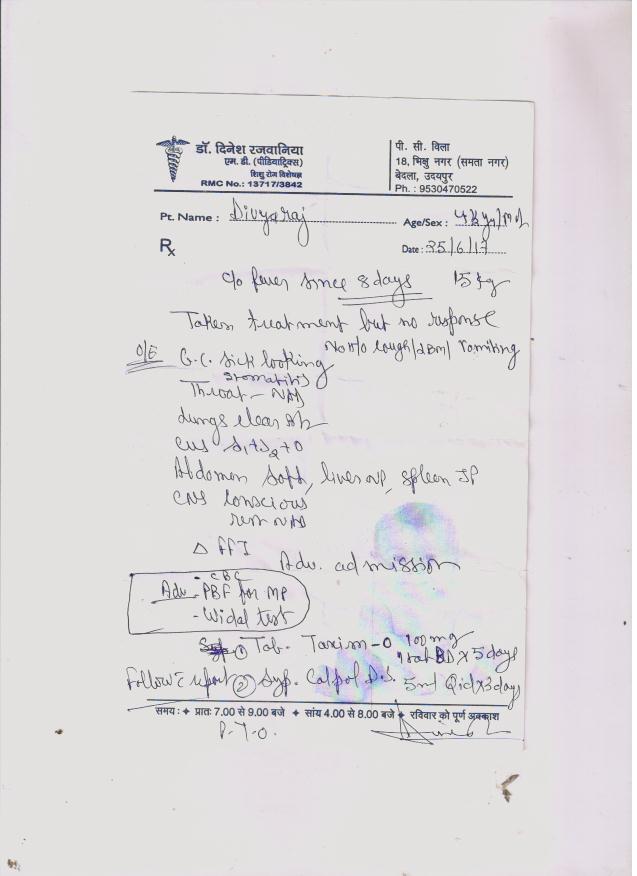 डॉ. दिनेश रजवानिया
एम. डी. (पीडियाट्रिक्स)
शिशु रोग विशेषज्ञ
RMC No.: 13717/3842
पी. सी. विला
18, भिक्षु नगर (समता नगर)
बेदला, उदयपुर
Ph. : 9530470522
Pt. Name : Divyaraj
Age/Sex :
Rx
Date : 25/6/17
c/o fever since 8 days 15 kg
Taken treatment but no response
No H/o cough/ / vomiting
O/E G.C. sick looking
stomatitis
Throat - NAD
Lungs clear
CVS S1+S2+0
Abdomen soft, liver NP, spleen JP
CNS conscious
rest NAD
△ AFI
Adv. admission
- CBC
Adv - PBF for MP
- Widal test
① Tab. Taxim-O 100mg
1 tab BD x 5 days
Follow c report ② Syp. Calpol D.S. 5ml Qid x 3 days
समय : ✦ प्रातः 7.00 से 9.00 बजे ✦ सांय 4.00 से 8.00 बजे ✦ रविवार को पूर्ण अवकाश
P.T.O.